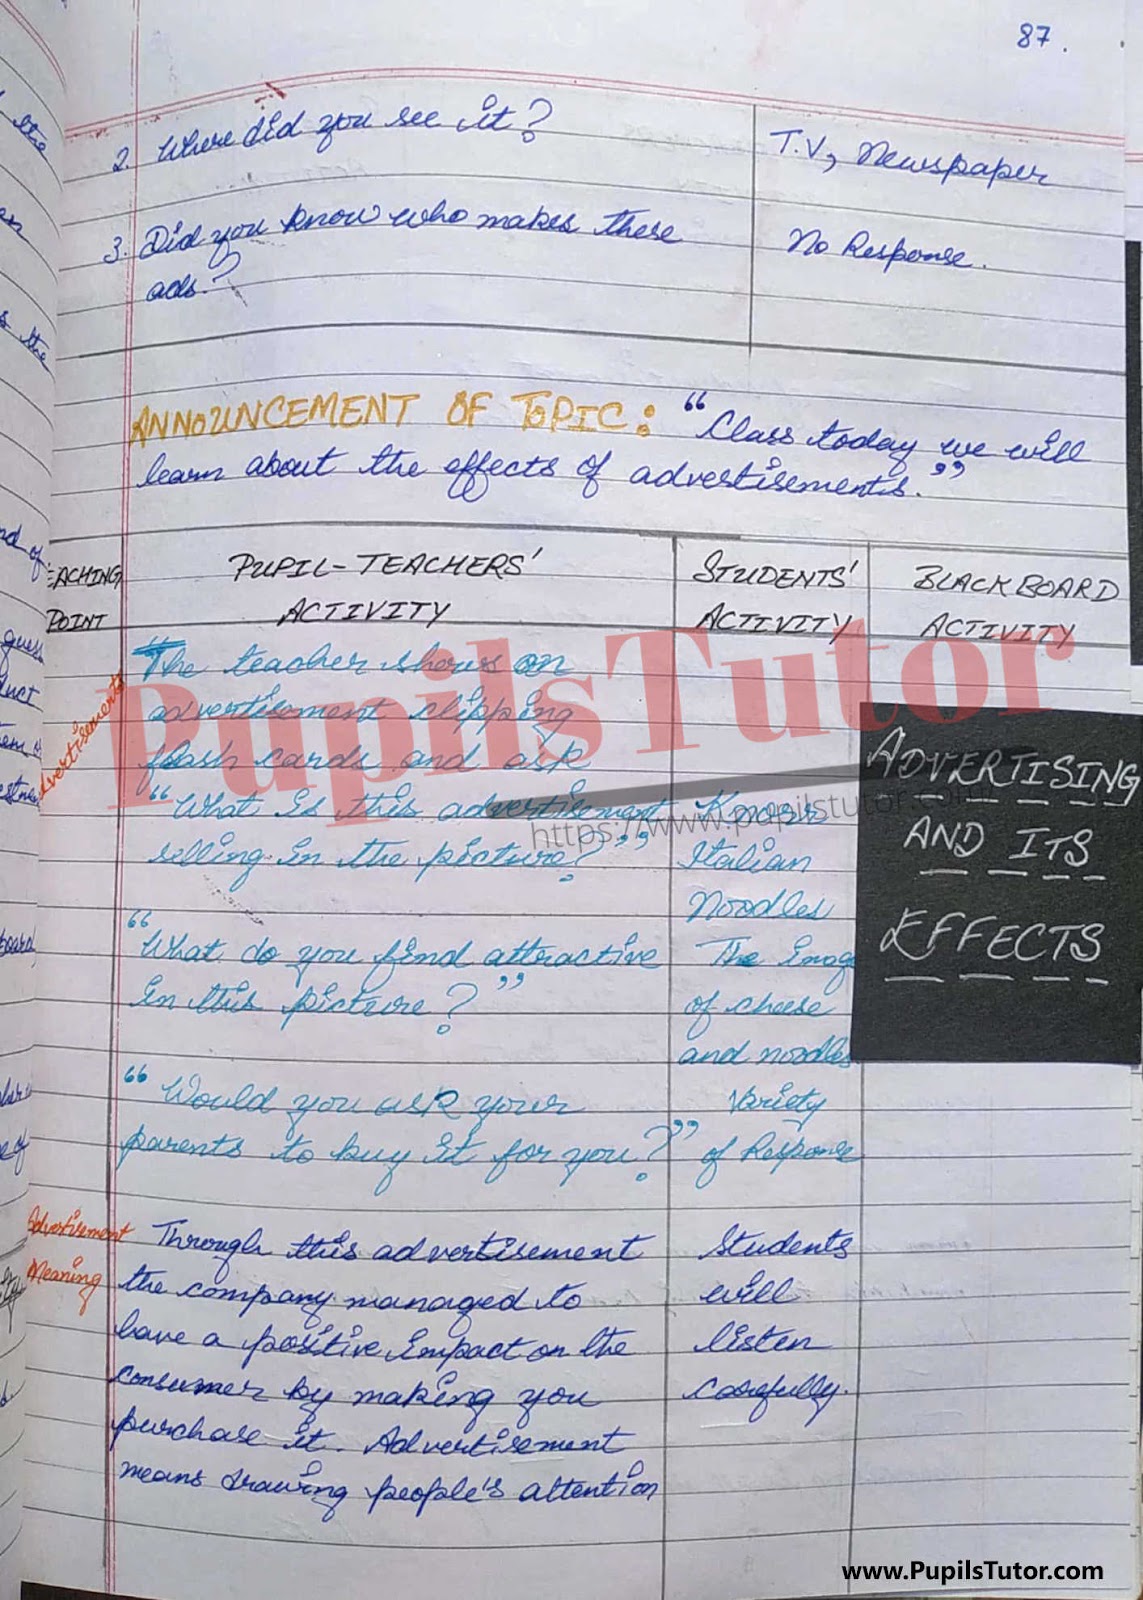 87.
2. Where did you see it?
T.V, Newspaper
3. Did you know who makes these
ads.?
No Response.
ANNOUNCEMENT OF TOPIC: "Class today we will
learn about the effects of advertisements."
EACHING
POINT
PUPIL-TEACHERS'
ACTIVITY
STUDENTS'
ACTIVITY
BLACKBOARD
ACTIVITY
Advertisements
"The teacher shows an
advertisement clipping
flash cards and ask
"What is this advertisement
selling in the picture?"
Knorr
Italian
Noodles
"What do you find attractive
in this picture?"
The image
of cheese
and noodles
"Would you ask your
parents to buy it for you?"
Variety
of Response
ADVERTISING
AND ITS
EFFECTS
Advertisement
Meaning
Through this advertisement
the company managed to
have a positive impact on the
consumer by making you
purchase it. Advertisement
means drawing people's attention
Students
will
listen
carefully.
PupilsTutor
https://www.pupilstutor.com/
www.PupilsTutor.com